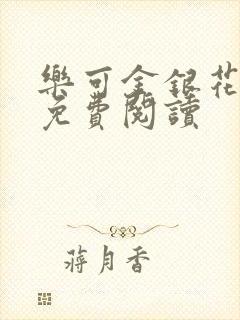 樂可金銀花
免費閱讀
蔣月香